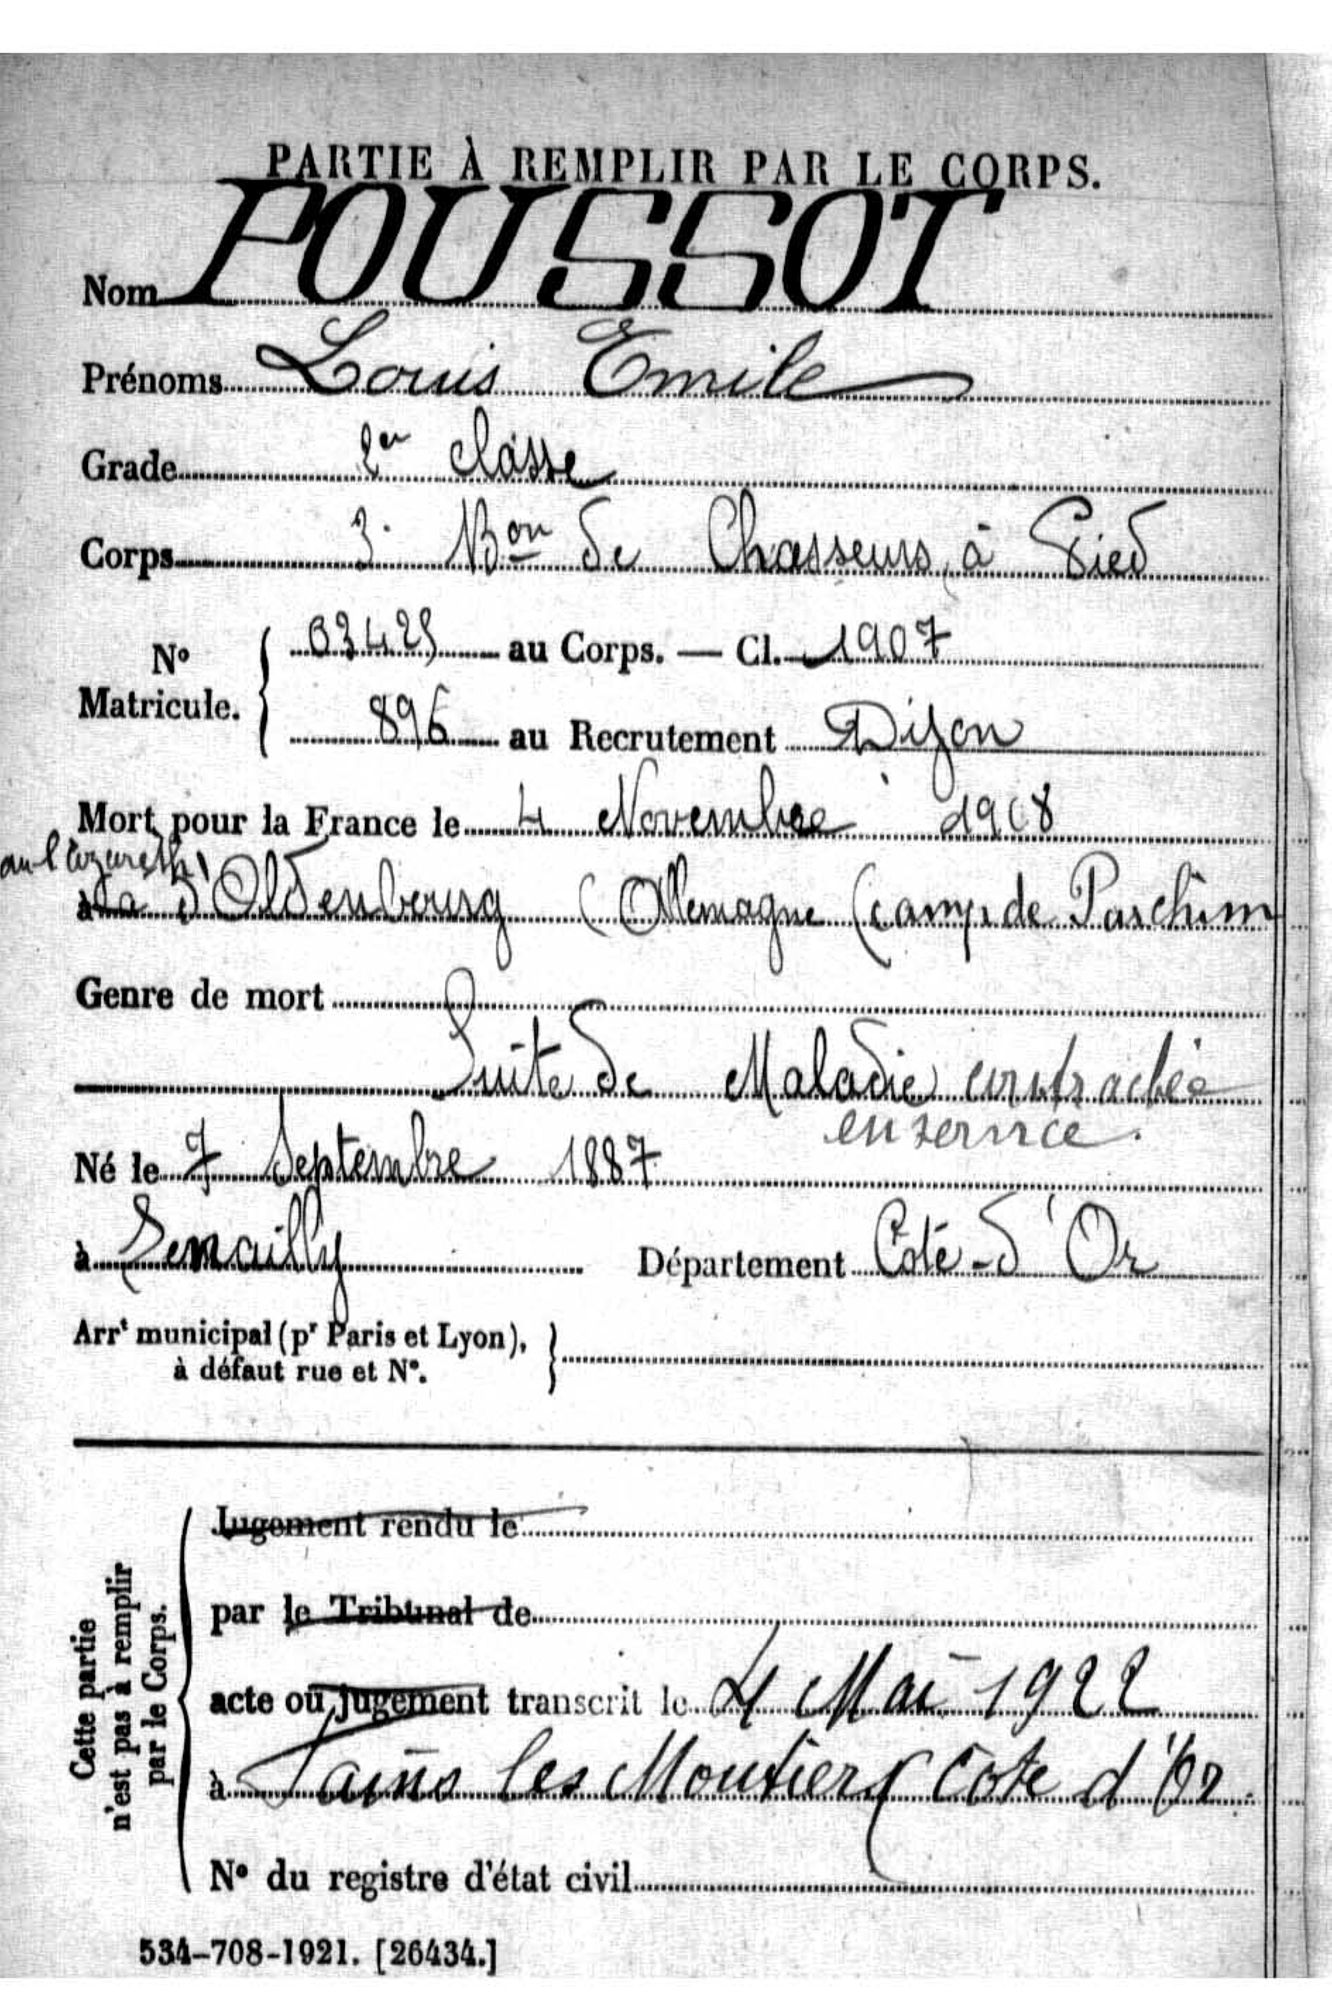 PARTIE À REMPLIR PAR LE CORPS.
Nom POUSSOT
Prénoms Louis Emile
Grade 2e classe
Corps 3e Bon de Chasseurs à Pied
No Matricule. 03429 au Corps. — Cl. 1907
896 au Recrutement Dijon
Mort pour la France le 4 Novembre 1918
au Lazareth
à d'Oldenbourg (Allemagne (camp de Parchim
Genre de mort
Suite de Maladie contractée
en service.
Né le 7 Septembre 1887
à Senailly Département Côte-d'Or
Arrt municipal (pr Paris et Lyon),
à défaut rue et No.
Cette partie
n'est pas à remplir
par le Corps.
Jugement rendu le
par le Tribunal de
acte ou jugement transcrit le 4 Mai 1922
à Fains les Moutiers (Côte d'Or
No du registre d'état civil
534-708-1921. [26434.]